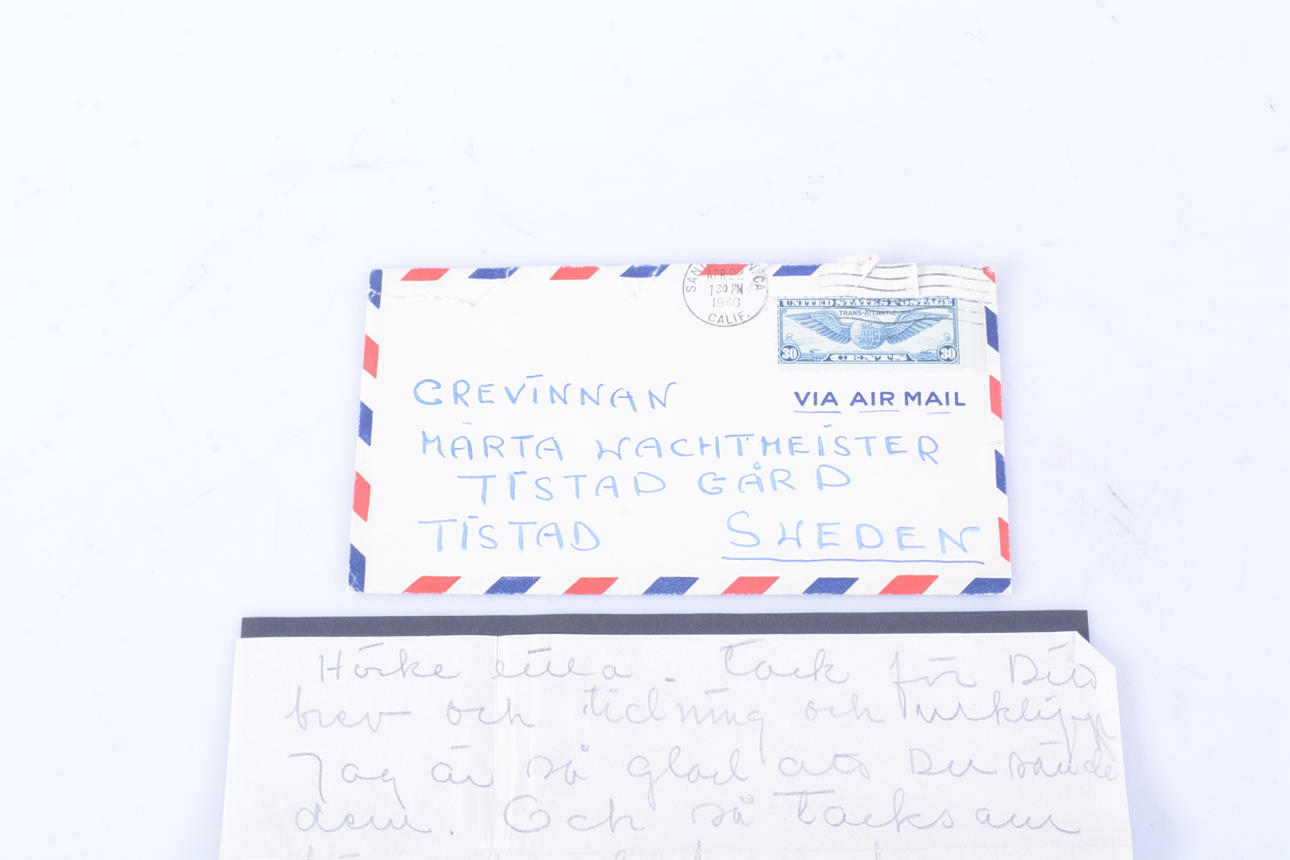 SANTA MONICA
APR 22
1 30 PM
1940
CALIF.
UNITED STATES POSTAGE
TRANS-ATLANTIC
30 CENTS 30
VIA AIR MAIL
GREVINNAN
MÄRTA WACHTMEISTER
TISTAD GÅRD
TISTAD SWEDEN
Hörke lilla. Tack för Ditt
brev och tidning och urklipp
Jag är så glad att Du sände
dem. Och så tacksam